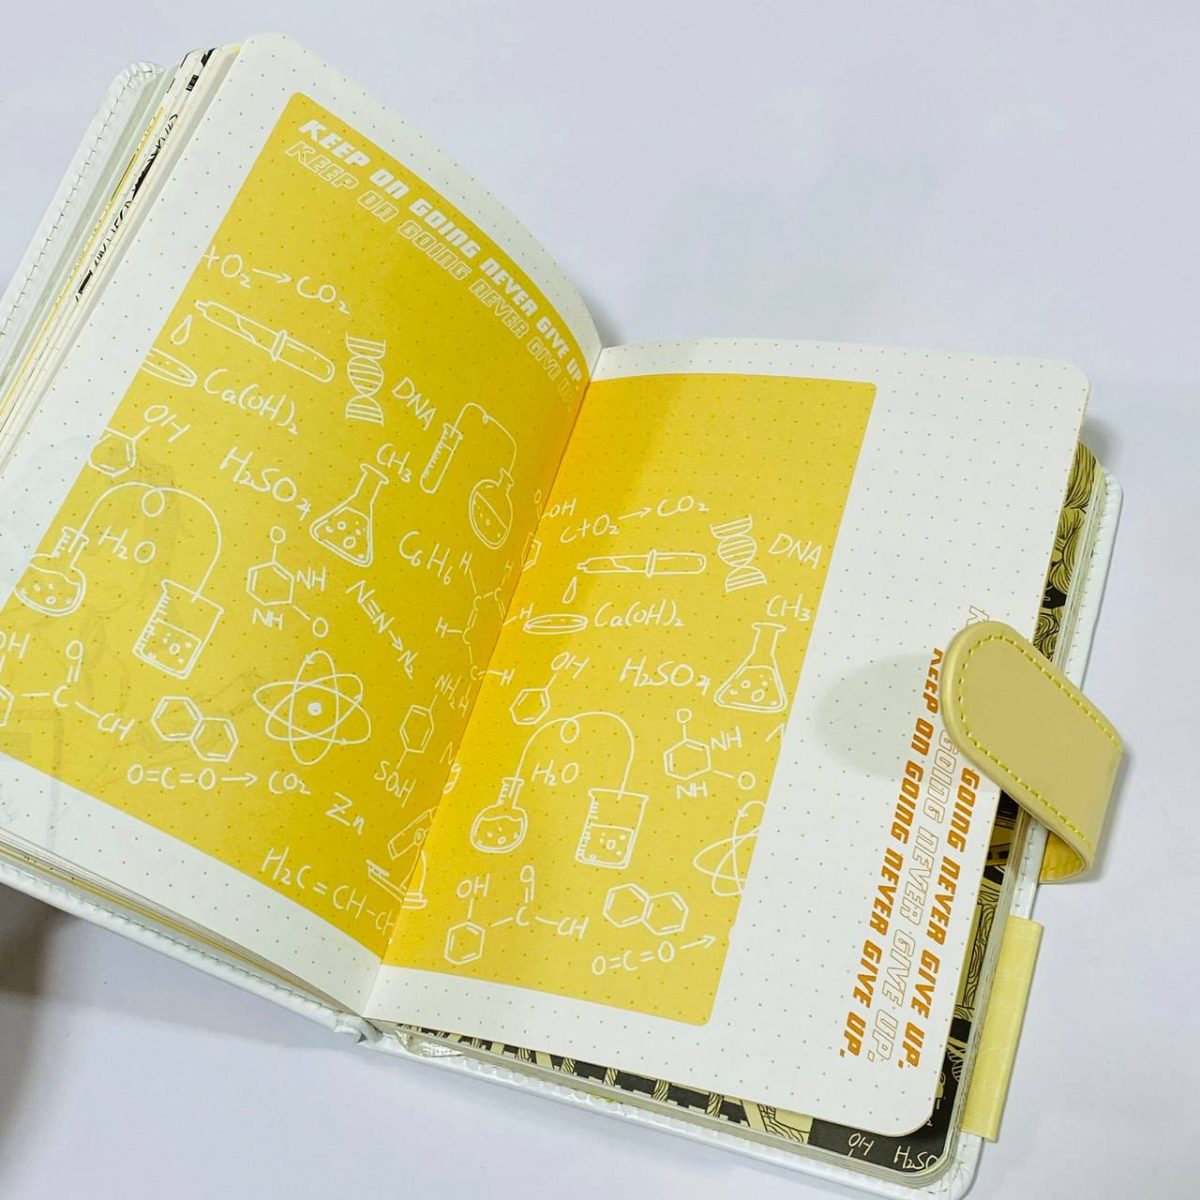 KEEP ON GOING NEVER GIVE UP
KEEP ON GOING NEVER GIVE UP
+O₂→CO₂
Ca(OH)₂
DNA
OH
H₂SO₄
CH₃
C₆H₆
H
H₂O
NH
NH
O
N≡N→N₂
H-C
H
OH
O
C
CH
NH₂
SO₂H
O=C=O→CO₂
Zn
H₂C=CH-CH
OH
C+O₂→CO₂
DNA
H
Ca(OH)₂
CH₃
OH
H₂SO₄
H₂O
NH
NH
O
OH
O
C
CH
O=C=O→
GOING NEVER GIVE UP.
GOING NEVER GIVE UP.
KEEP ON GOING NEVER GIVE UP.
OH
H₂SO